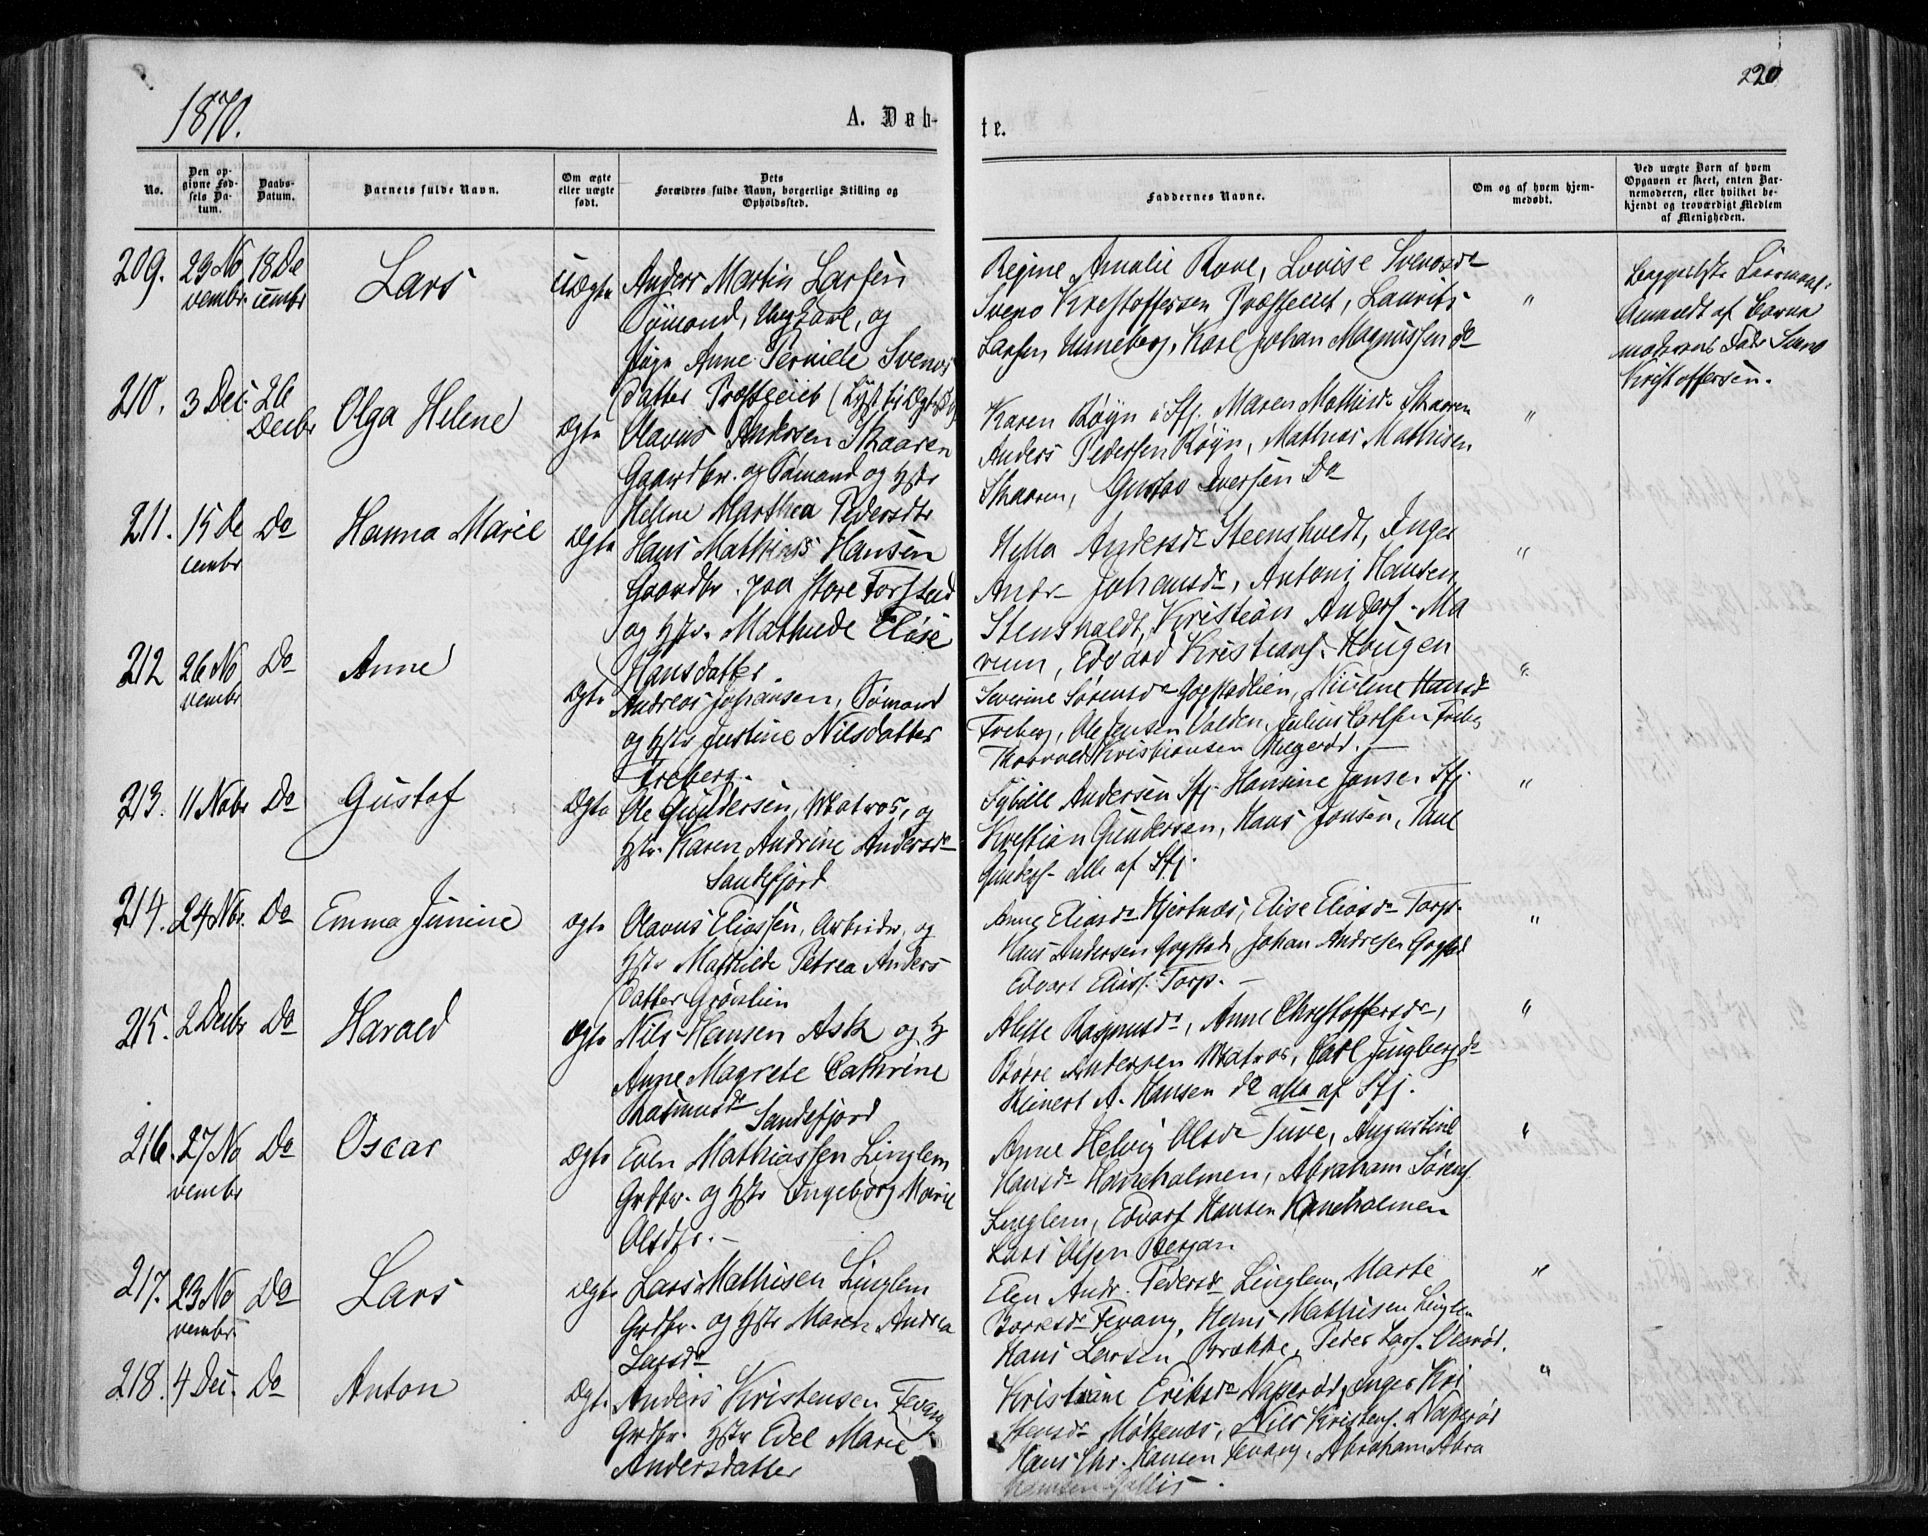 1870.
220
A. Døb-
te.
No.
Den op-
givne Fød-
sels Da-
tum.
Daabs-
Datum.
Barnets fulde Navn.
Om ægte
eller uægte
født.
Dets
Forældres fulde Navn, borgerlige Stilling og
Opholdssted.
Faddernes Navne.
Om og af hvem hjem-
medøbt.
Ved uægte Børn af hvem
Opgaven er skeet, enten Bar-
nemoderen, eller hvilket be-
kjendt og troværdigt Medlem
af Menigheden.
209. 29 No 18 De Lars Uægte Anders Martin Larsen
vembr cembr Sømand, Ungkarl, og
Pige Anne Pernille Svends
datter Præsteeiet
Regine Amalie Rove, Lovise Svendsdr
Svend Kristoffersen Præsteeiet, Laurits
Larsen Unneberg, Karl Johan Magnussen do
"
Anmeldt af Barne
moderens Fader Svend
Kristoffersen.
210. 3 Dec. 26 Olga Helene Ægte Olavus Andersen Skaaren
Decbr Gaardbr. og Sømand og Hstr
Helene Marthea Pedersdtr
Karen Røyn i Sfj. Maren Mathisdr Skaaren
Anders Pedersen Røyn, Mathias Mathisen
Skaaren, Gustav Iversen Do
"
211. 15 De Do Hanna Marie Ægte Hans Mathias Hansen
cembr Gaardbr. paa store
og Hstr. Mathilde Elise
Hansdatter.
Andersdr Steensholdt, Inger
Andr Johansdr, Anton Hansen
Stensholdt, Kristian Anders. Ma
rum, Edvard Kristians. Haugen
"
212 26 No Do Anne Ægte Andreas Johansen, Sømand
vembr og Hstr Justine Nilsdatter
Freberg.
Severine Sørensdr Gogstadlien, Nicoline Hansdr
Freberg, Ole Jensen Valden, Julius Carlsen Freberg
Thorvald Kristiansen
"
213. 11 Novbr Do Gustaf Ægte Ole Gundersen, Matros, og
Hstr. Karen Andrine Andersdr
Sandefjord
Sybille Andersen Sfj. Hansine Jansen Sfj.
Kristian Gundersen, Hans Jonsen, Paul
Gunders. alle af Sfj.
"
214. 24 Nbr. Do Emma Junine Ægte Olavus Eliassen, Arbeider, og
Hstr Mathilde Petrea Anders
datter Grønlien
Anne Eliasdr Hjertnæs, Elise Eliasdr Torp.
Hans Andersen Gogstad, Johan Andresen Gogstad
Edvart Elias. Torp.
"
215. 2 Decbr Do Harald Ægte Nils Hansen Ask og H
Anne Magrete Cathrine
Rasmusdr Sandefjord
Rasmusdr, Anne Christoffersdr,
Børre Andersen Matros, Carl Jungberg do
Reinert A. Hansen do alle af Sfj.
"
216. 27 No Do Oscar Ægte Even Mathiassen Linglem
vembr Grdbr. og Hstr Ingeborg Marie
Olsdtr.
Anne Helvig Olsdr Tuve, Augustine
Hansdr Haneholmen, Abraham Sørens.
Linglem, Edvart Hansen Haneholmen
Lars Olsen Berjan
"
217. 23 No Do Lars Ægte Lars Mathisen Linglem
vembr Grdbr. og Hstr Maren Andrea
Larsdr
Elen Andr. Pedersdr Linglem, Marte
Børresdr Fevang, Hans Mathisen Linglem
Hans Larsen Brække, Peder Lars.
"
218. 4 Dec. Do Anton Ægte Anders Kristensen Fevang
Grdbr. Hstr Edel Marie
Andersdatter
Kristine Eriksdr Naperød, Inger Kri
stensdr Møkenæs, Nils Kristens. Naperød
Hans Chr. Hansen Fevang, Abraham Abra
hamsen
"